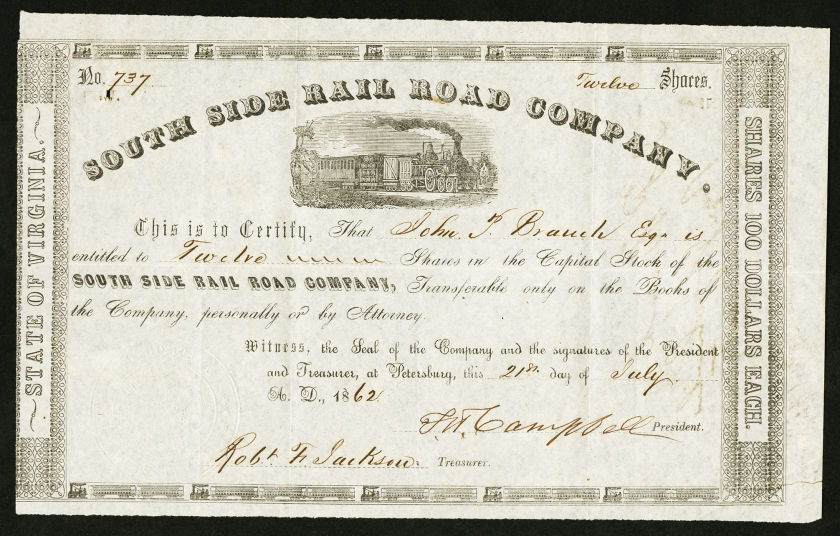 No. 737 Twelve Shares.
SOUTH SIDE RAIL ROAD COMPANY.
STATE OF VIRGINIA.
SHARES 100 DOLLARS EACH.
This is to Certify, That John P. Branch Esqr is
entitled to Twelve Shares in the Capital Stock of the
SOUTH SIDE RAIL ROAD COMPANY, Transferable only on the Books of
the Company, personally or by Attorney.
Witness, the Seal of the Company and the signatures of the President
and Treasurer, at Petersburg, this 21st day of July
A. D., 1862
Campbell President.
Robt. F. Jackson. Treasurer.